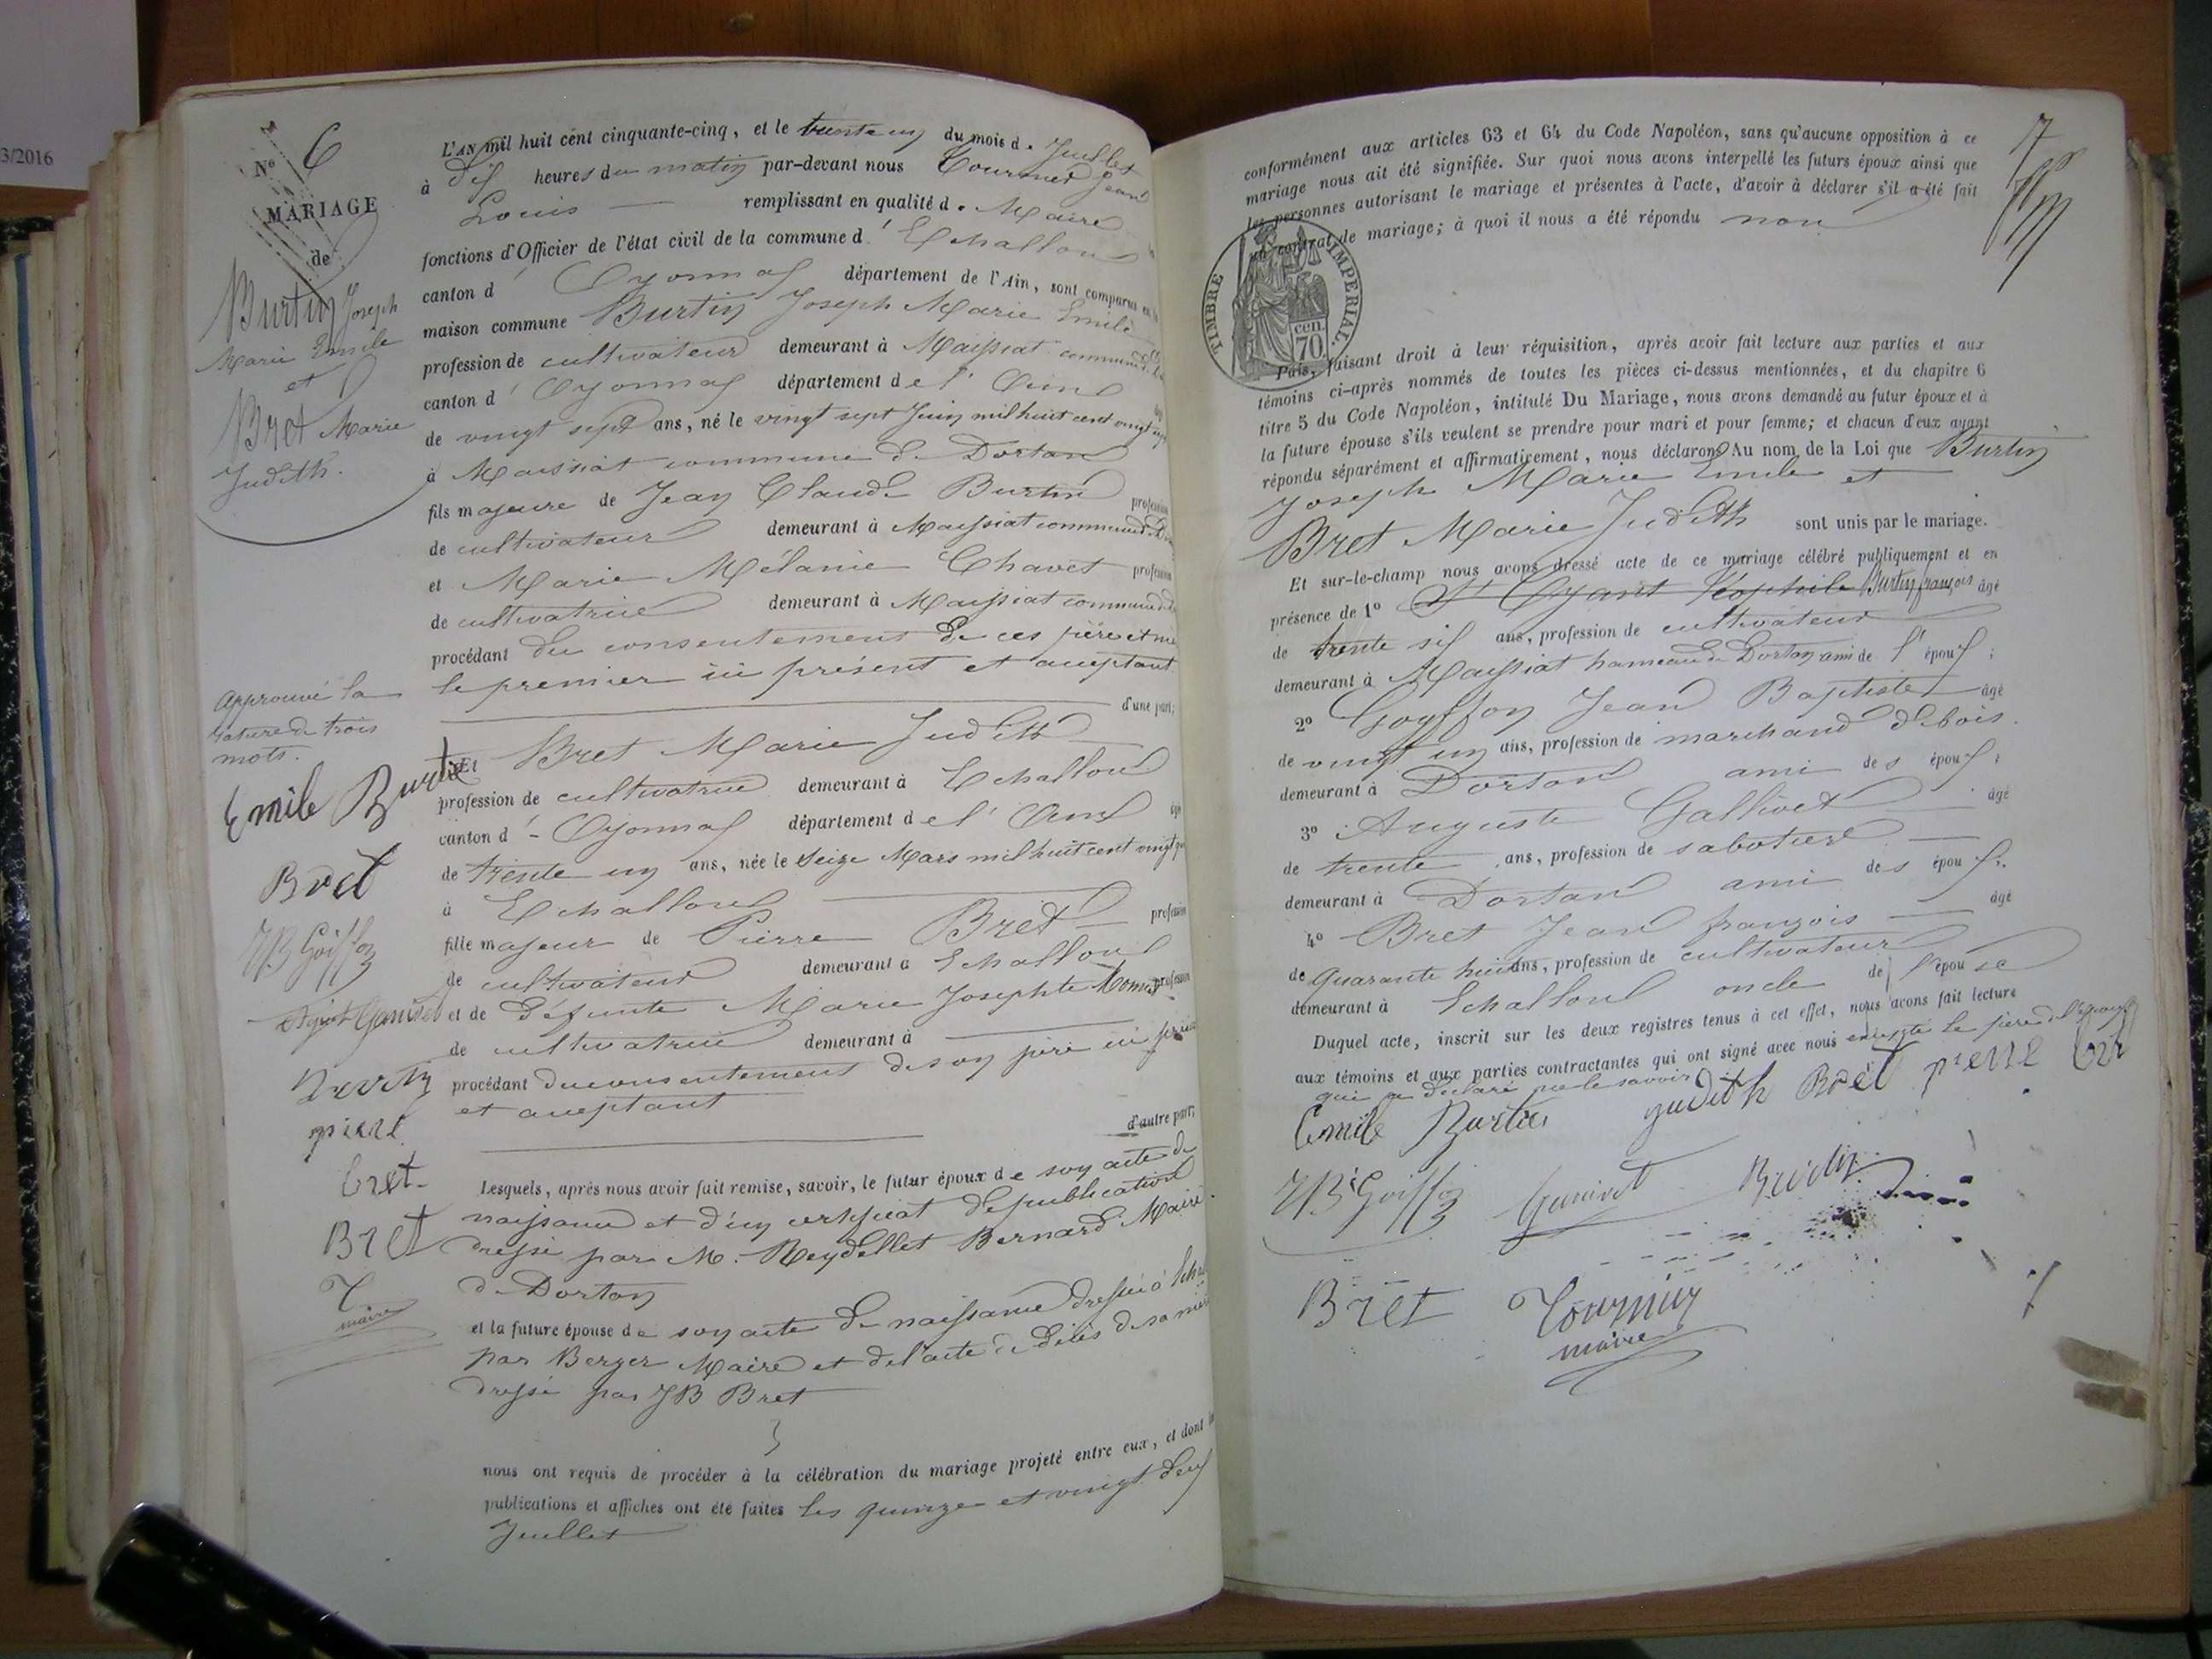 3/2016
N° 6
MARIAGE
de
Burtin Joseph
Marie Emile
et
Bret Marie
Judith.
Approuvé la
rature de trois
mots.
Emile Burtin
Bret
JB Goiffon
pierre
bret
Bret
T
maire
L'AN mil huit cent cinquante-cinq, et le trente un du mois d. Juillet
à dix heures du matin par-devant nous Tournier Jean
Louis remplissant en qualité d. Maire
fonctions d'Officier de l'état civil de la commune d' Echallon
canton d' Oyonnax département de l'Ain, sont comparus en la
maison commune Burtin Joseph Marie Emile
profession de cultivateur demeurant à Maissiat commune
canton d' Oyonnax département de l' Ain
de vingt sept ans, né le vingt sept Juin mil huit cent vingt
à Maissiat commune de Dortan
fils majeure de Jean Claude Burtin profession
de cultivateur demeurant à Maissiat commune
et Marie Mélanie Chavet profession
de cultivatrice demeurant à Maissiat commune
procédant du consentement de ces père et
le premier ici présent et acceptant
d'une part;
Et Bret Marie Judith
profession de cultivatrice demeurant à Echallon
canton d' Oyonnax département de l' Ain
de trente un ans, née le seize Mars mil huit cent vingt
à Echallon
fille majeur de Pierre Bret profession
de cultivateur demeurant à Echallon
et de défunte Marie Josephte profession
de cultivatrice demeurant à
procédant du consentement de son père ici
et acceptant
d'autre part;
Lesquels, après nous avoir fait remise, savoir, le futur époux de son acte de
naissance et d'un certificat de publication
dressé par M. Reydellet Bernard Maire
de Dortan
et la future épouse de son acte de naissance dressé à
par Berger Maire et de l'acte de décès de sa
dressé par JB Bret
nous ont requis de procéder à la célébration du mariage projeté entre eux, et dont
publications et affiches ont été faites les quinze et vingt deux
Juillet
7
conformément aux articles 63 et 64 du Code Napoléon, sans qu'aucune opposition à ce
mariage nous ait été signifiée. Sur quoi nous avons interpellé les futurs époux ainsi que
les personnes autorisant le mariage et présentes à l'acte, d'avoir à déclarer s'il a été fait
un contrat de mariage; à quoi il nous a été répondu non
TIMBRE IMPERIAL.
cen.
70
Puis, faisant droit à leur réquisition, après avoir fait lecture aux parties et aux
témoins ci-après nommés de toutes les pièces ci-dessus mentionnées, et du chapitre 6
titre 5 du Code Napoléon, intitulé Du Mariage, nous avons demandé au futur époux et à
la future épouse s'ils veulent se prendre pour mari et pour femme; et chacun d'eux ayant
répondu séparément et affirmativement, nous déclarons Au nom de la Loi que Burtin
Joseph Marie Emile et
Bret Marie Judith sont unis par le mariage.
Et sur-le-champ nous avons dressé acte de ce mariage célébré publiquement et en
présence de 1° St Oyant Téophile Burtin françois âgé
de trente six ans, profession de cultivateur
demeurant à Maissiat hameau de Dortan ami de l' époux;
2° Goyffon Jean Baptiste âgé
de vingt un ans, profession de marchand de bois
demeurant à Dortan ami des époux;
3° Auguste âgé
de trente ans, profession de sabotier
demeurant à Dortan ami des époux.
4° Bret Jean françois âgé
de quarante huit ans, profession de cultivateur
demeurant à Echallon oncle de l'épouse
Duquel acte, inscrit sur les deux registres tenus à cet effet, nous avons fait lecture
aux témoins et aux parties contractantes qui ont signé avec nous excepté le père de l'époux
qui a déclaré ne le savoir
Emile Burtin judith Bret pierre
JB Goiffon Ganivet Burtin
Bret Tournier
maire